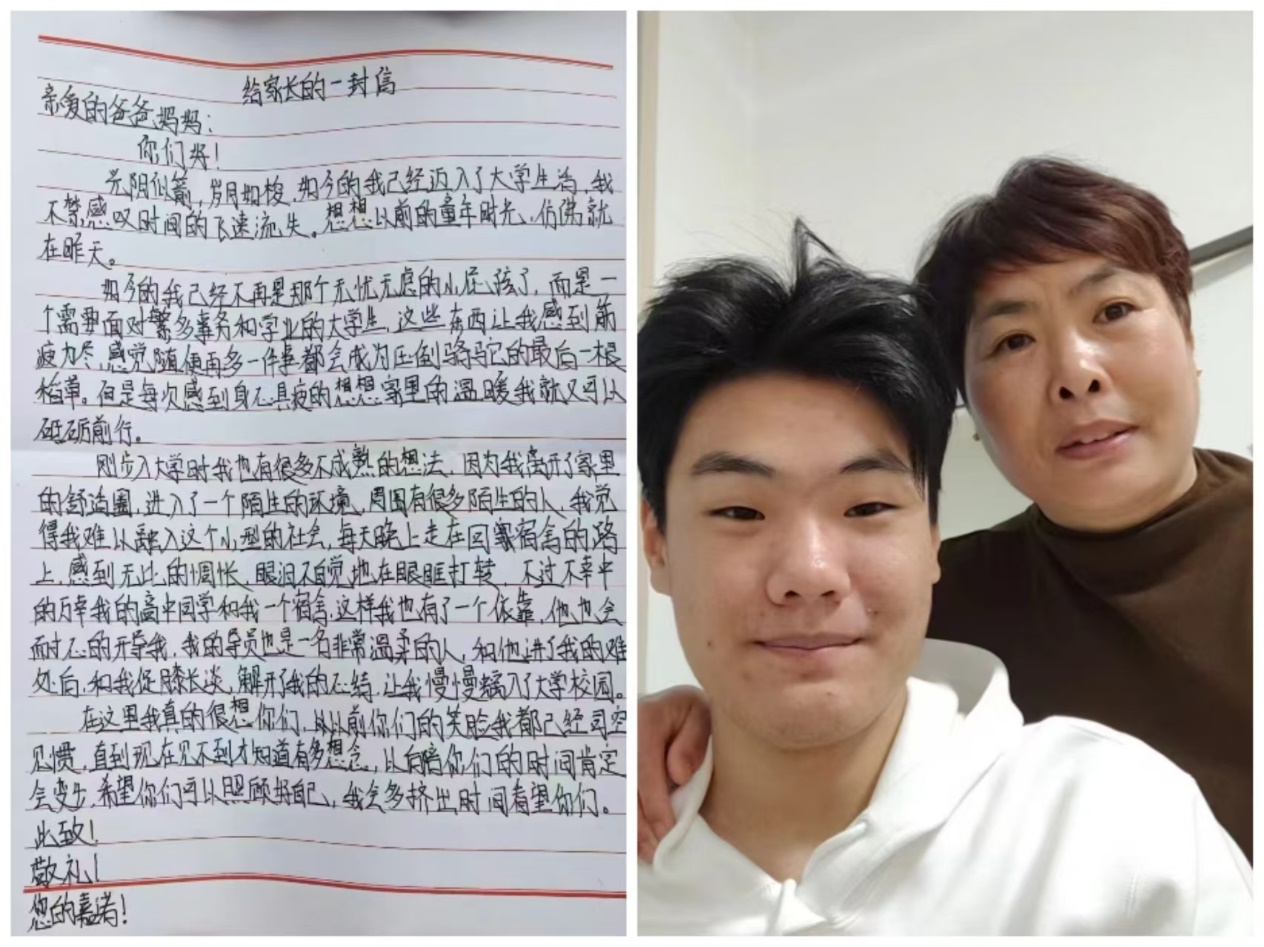 给家长的一封信
亲爱的爸爸妈妈:
你们好!
光阴似箭,岁月如梭,如今的我已经迈入了大学生活,我
不禁感叹时间的飞速流失。想想以前的童年时光,仿佛就
在昨天。
如今的我已经不再是那个无忧无虑的小屁孩了,而是一
个需要面对繁多事务和学业的大学生,这些东西让我感到筋
疲力尽,感觉随便再多一件事都会成为压倒骆驼的最后一根
稻草。但是每次感到身心具疲的想想家里的温暖我就又可以
砥砺前行。
刚步入大学时我也有很多不成熟的想法,因为我离开了家里
的舒适圈,进入了一个陌生的环境,周围有很多陌生的人,我觉
得我难以融入这个小型的社会,每天晚上走在回宿舍的路
上,感到无比的惆怅,眼泪不自觉地在眼眶打转,不过不幸中
的万幸我的高中同学和我一个宿舍,这样我也有了一个依靠,他也会
耐心的开导我,我的导员也是一名非常温柔的人,和他讲了我的难
处后,和我促膝长谈,解开了我的心结,让我慢慢融入了大学校园。
在这里我真的很想你们,以前你们的笑脸我都已经司空
见惯,直到现在见不到才知道有多想念,以后陪你们的时间肯定
会变少,希望你们可以照顾好自己,我会多挤出时间看望你们。
此致!
敬礼!
您的嘉诺!